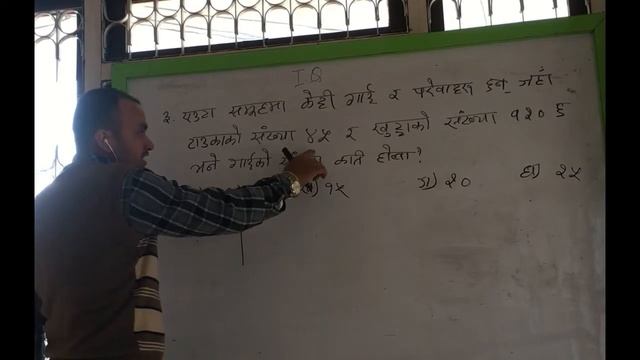 IQ
३. एउटा समूहमा केही गाई र परेवाहरु छन् जहाँ
टाउकाको संख्या ४५ र खुट्टाको संख्या १२० छ
भने गाईको कति होला?
१५ ग) २० घ) २५